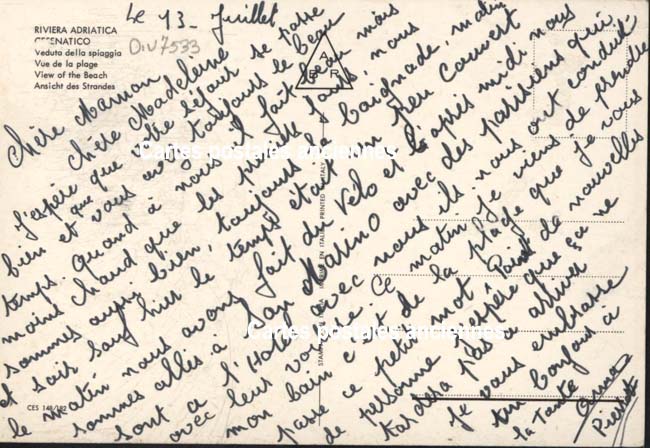 RIVIERA ADRIATICA
CESENATICO
Veduta della spiaggia
Vue de la plage
View of the Beach
Ansicht des Strandes
Le 13 Juillet
DIV7533
BR
Chère Maman
Chère Madeleine
J'espère que votre séjour se passe
bien et que vous avez toujours le beau
temps. Quand à nous il fait au
moins chaud que les jours, nous
sommes aussi bien, toujours la baignade, matin
et soir sauf hier le temps était un peu couvert
le matin nous avons fait du vélo et l'après midi nous
sommes allés à San Marino avec des parisiens qui
sont à l'Hotel avec nous ils nous ont conduit
avec leur voiture. Ce matin je viens de prendre
mon bain c'est de la plage que je vous
passe ce petit mot, Point de nouvelles
de personne j'espère que ça ne
tardera pas à arriver
Je vous embrasse
un bonjour à
la Tante
Pierrette
CES 148/192
Cartes postales anciennes
Cartes postales anciennes